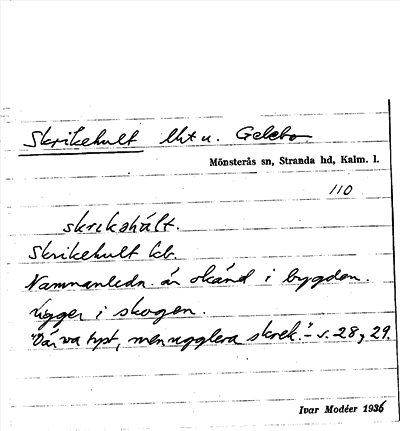 Skrikehult lht u. Gelebo
Mönsterås sn, Stranda hd, Kalm. l.
110
skrikahúlt.
Skrikehult lcb.
Namnanledn. är okänd i bygden.
Ligger i skogen.
"Där va tyst, men ugglera skrek." – s. 28, 29.
Ivar Modéer 1936